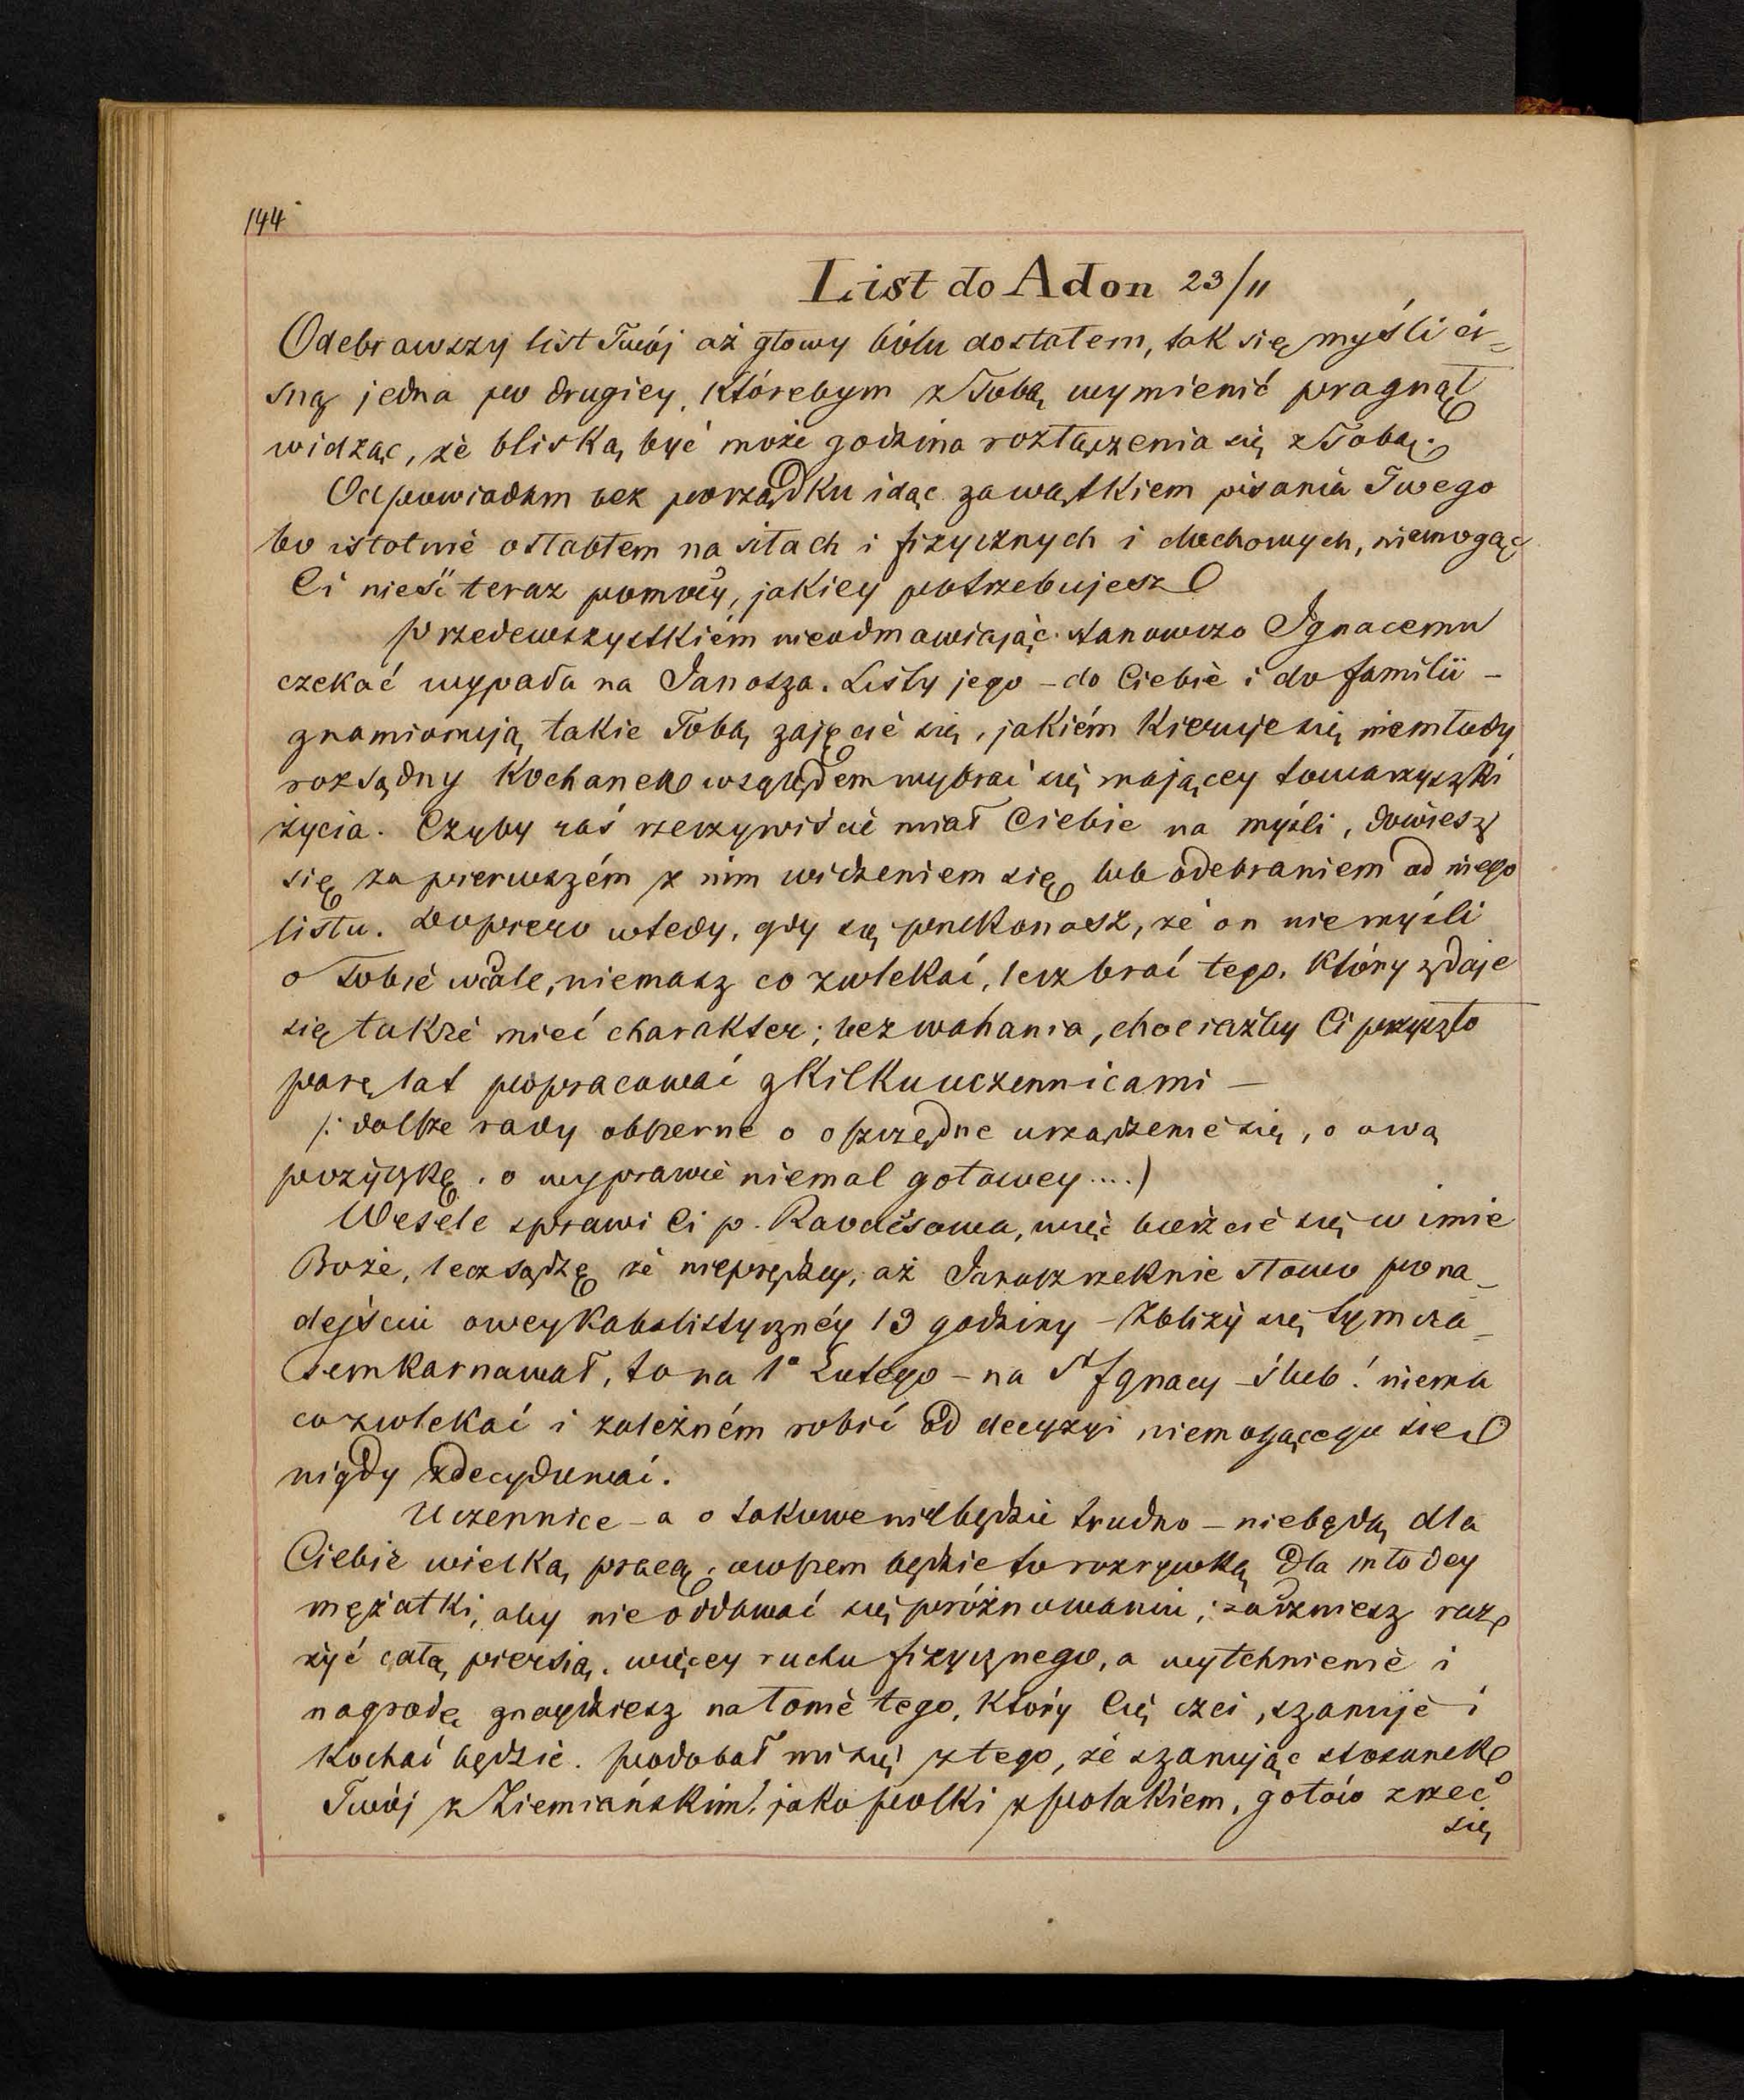 144
List do Adon 23/11
Odebrawszy list Twój aż głowy bólu dostałem, tak się myśli ci=
sną jedna po drugiey, którebym z Tobą wymienić pragnął
widząc, że bliską być może godzina rozłączenia się z Tobą.
Odpowiadam bez porządku idąc za wątkiem pisania Twego
bo istotnie osłabłem na siłach i fizycznych i duchowych, niemogąc
Ci nieść teraz pomocy, jakiey potrzebujesz
Przedewszystkiém nieodmawiając stanowczo Ignacemu
czekać wypada na Janosza. Listy jego - do Ciebie i do familii -
znamionują takie Tobą zajęcie się, jakiém kieruje się niemłody
rozsądny kochanek względem wybrać się mającey towarzyszki
życia. Czyby zaś rzeczywiście miał Ciebie na myśli, dowiesz
się za pierwszém z nim widzeniem się lub odebraniem od niego
listu. Dopiero wtedy, gdy się przekonasz, że on niemyśli
o Tobie wcale, niemasz co zwlekać, lecz brać tego, który zdaje
się także mieć charakter; bez wahania, chociażby Ci przyszło
parę lat popracować z kilku uczennicami -
/: dalsze rady obszerne o oszczędne urządzenie się, o ową
pożyczkę, o wyprawie niemal gotowey....)
Wesele sprawi Ci p. Kovácsowa, więc bierzcie się w imie
Boże, lecz sądzę że nieprędzey, aż Janosz rzeknie słowo po na-
dejściu owey kabalistycznéy 19 godziny - Zbliży się tymcza-
sem karnawał, to na 1° Lutego - na St Ignacy - ślub! niema
co zwlekać i zależném robić od decyzyi niemogącego się
nigdy zdecydować.
Uczennice - a o takowe niebędzie trudno - niebędą dla
Ciebie wielką pracą, owszem będzie to rozrywką dla młodey
mężatki, aby nie oddawać się próżnowaniu; zaczniesz raz
żyć całą piersią, więcey ruchu fizycznego, a wytchnienie i
nagrodę znaydziesz na łonie tego, który Cię czci, szanuje i
kochać będzie. Podobał mi się z tego, że szanując stosunek
Twój z Ziemiańskim, jako Polki z Polakiem, gotów zrzec
się